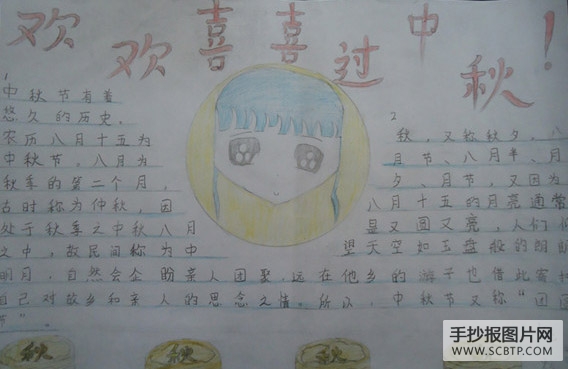 欢欢喜喜过中秋！
1
中秋节有着
悠久的历史。
农历八月十五为
中秋节。八月为
秋季的第二个月，
古时称为仲秋，因
处于秋季之中秋八月
之中，故民间称为中
2
秋，又称秋夕、八
月节、八月半、月
夕、月节，又因为
八月十五的月亮通常
显又圆又亮，人们
望天空如玉盘般的朗朗
明月，自然会企盼亲人团聚，远在他乡的游子也借此寄
自己对故乡和亲人的思念之情。所以，中秋节又称“团圆
节”。
秋 秋 秋 秋
手抄报图片网
WWW.SCBTP.COM